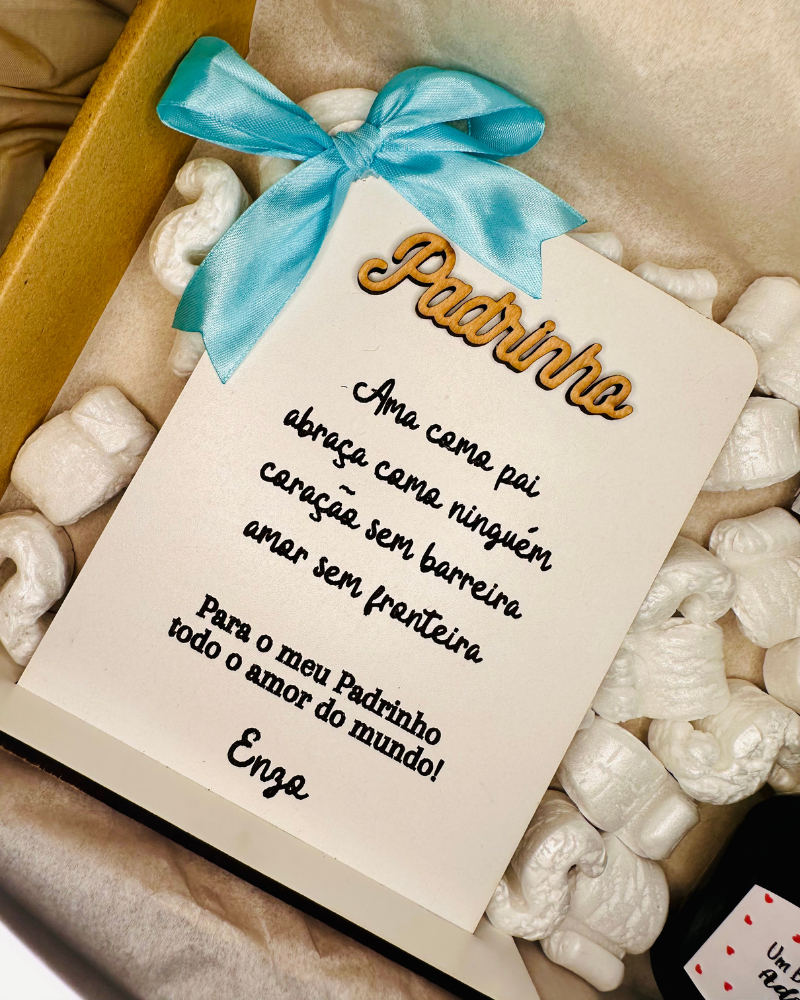 Padrinho
Ama como pai
abraça como ninguém
coração sem barreira
amor sem fronteira
Para o meu Padrinho
todo o amor do mundo!
Enzo
Um